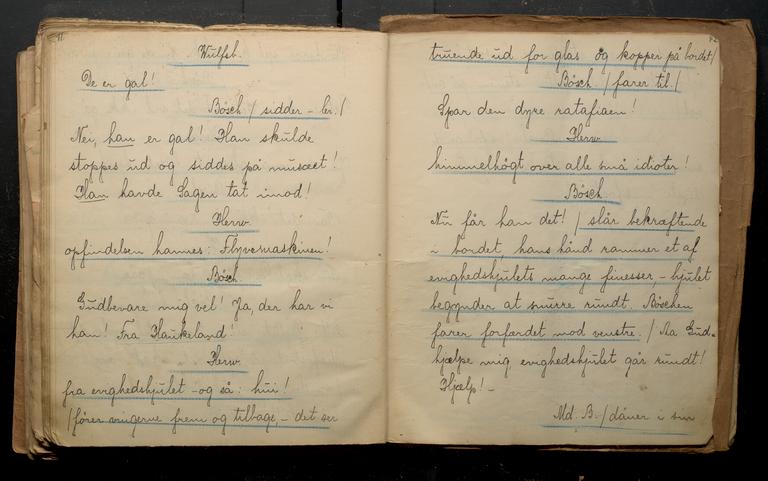 Wulfsb.
De er gal!
Bösch / sidder – ler. /
Nei, han er gal! Han skulde
stoppes ud og siddes på musæet!
Han havde Sagen tat imod!
Herw.
opfindelsen hannes: Flyvemaskinen!
Bösch.
Gudbevare mig vel! Ja, der har vi
han! Fra Haukeland!
Herw.
fra evighedshjulet – og så: hui!
/ fører vingerne frem og tilbage, – det ser
truende ud for glas og kopper på bordet /
Bösch / farer til. /
Spar den dyre ratafiaen!
Herw.
himmelhögt over alle små idioter!
Bösch.
Nu får han det! / slår bekræftende
i bordet, hans hånd rammer et af
evighedshjulets mange finesser, – hjulet
begynder at snurre rundt. Böschen
farer forfærdet mod venstre. / Aa Gud-
hjælpe mig evighedshjulet går rundt!
Hjælp! –
Md. B. / dåner i sin